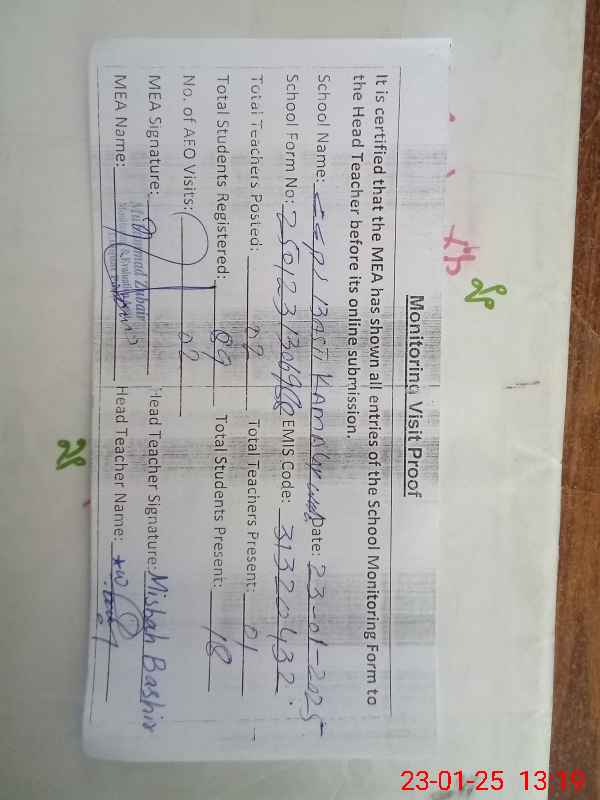 Monitoring Visit Proof
It is certified that the MEA has shown all entries of the School Monitoring Form to
the Head Teacher before its online submission.
School Name: BASTI KAMAL Date: 23-01-2025
School Form No: EMIS Code: 31320432
Total Teachers Posted: 02 Total Teachers Present: 01
Total Students Registered: 89 Total Students Present: 18
No. of AEO Visits: 02
MEA Signature: Head Teacher Signature: Misbah Bashir
Muhammad Zubair
MEA Name: Head Teacher Name:
23-01-25 13:19